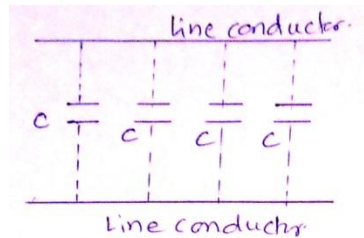 Line conductor.
C C C C
Line conductr.